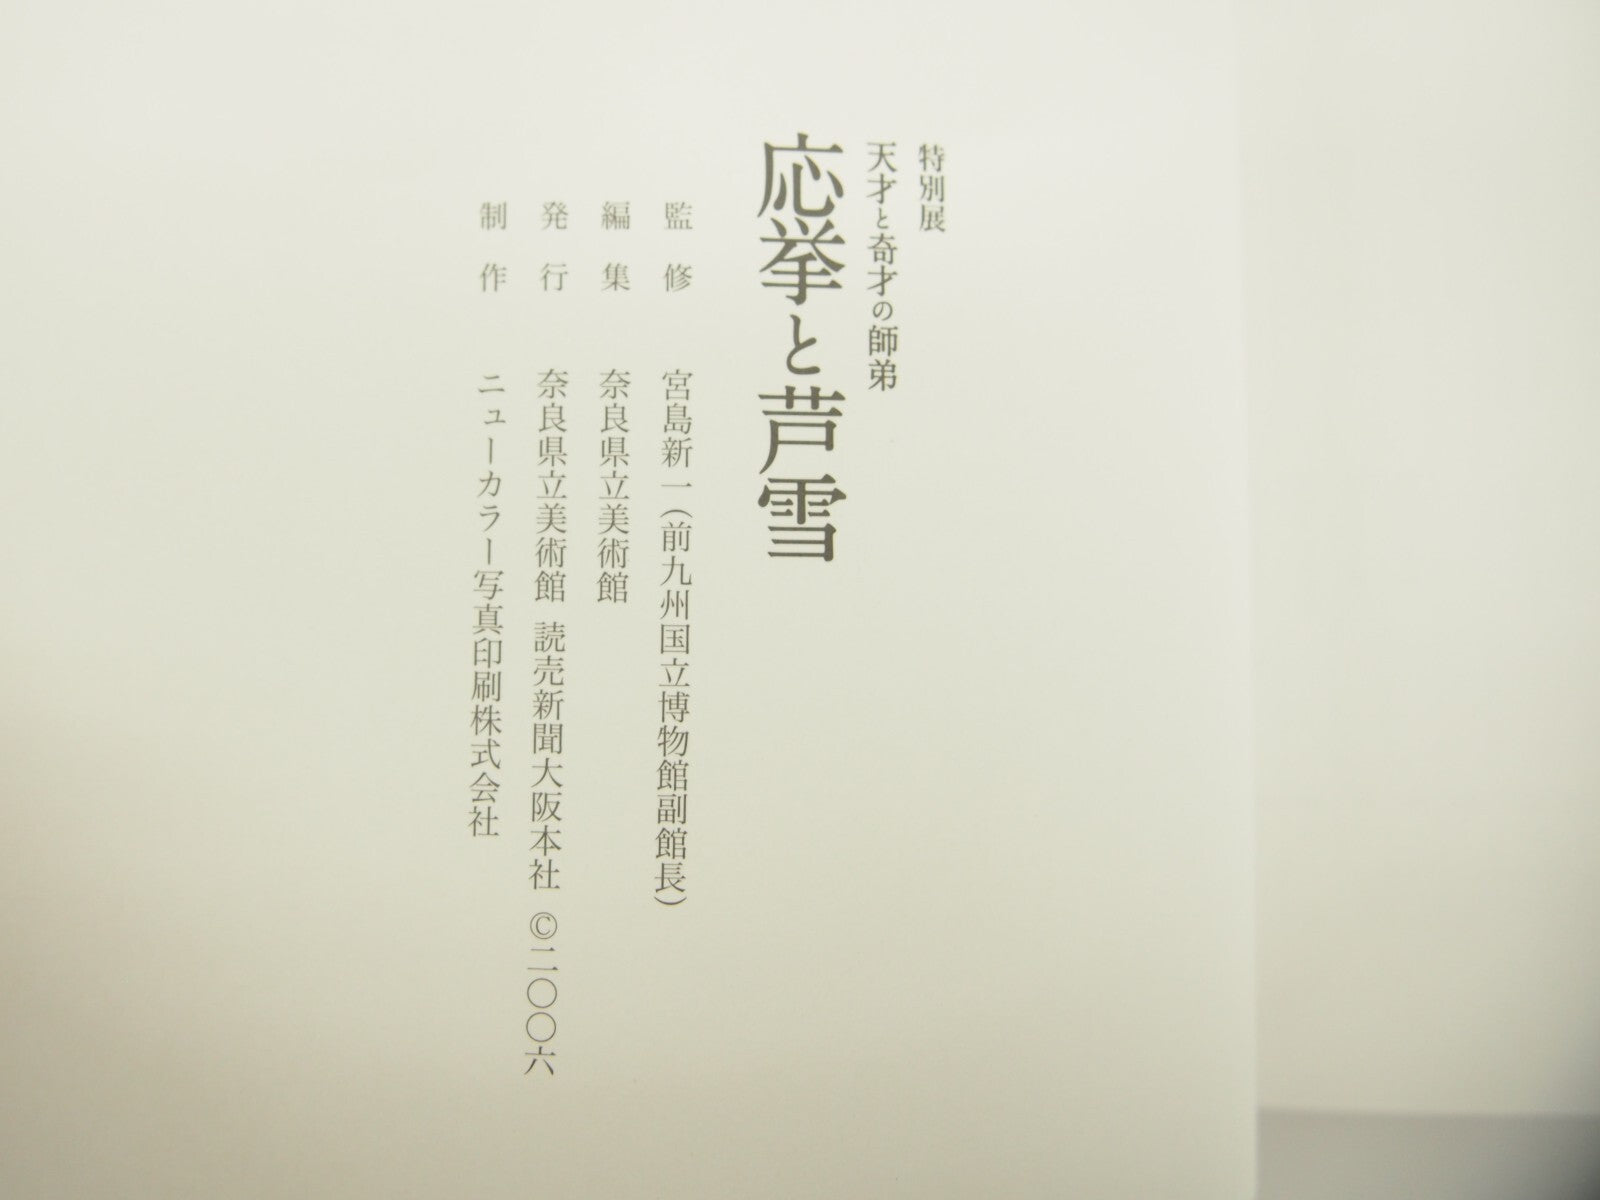 特別展
天才と奇才の師弟
応挙と芦雪
監修 宮島新一(前九州国立博物館副館長)
編集 奈良県立美術館
発行 奈良県立美術館 読売新聞大阪本社 ©二〇〇六
制作 ニューカラー写真印刷株式会社